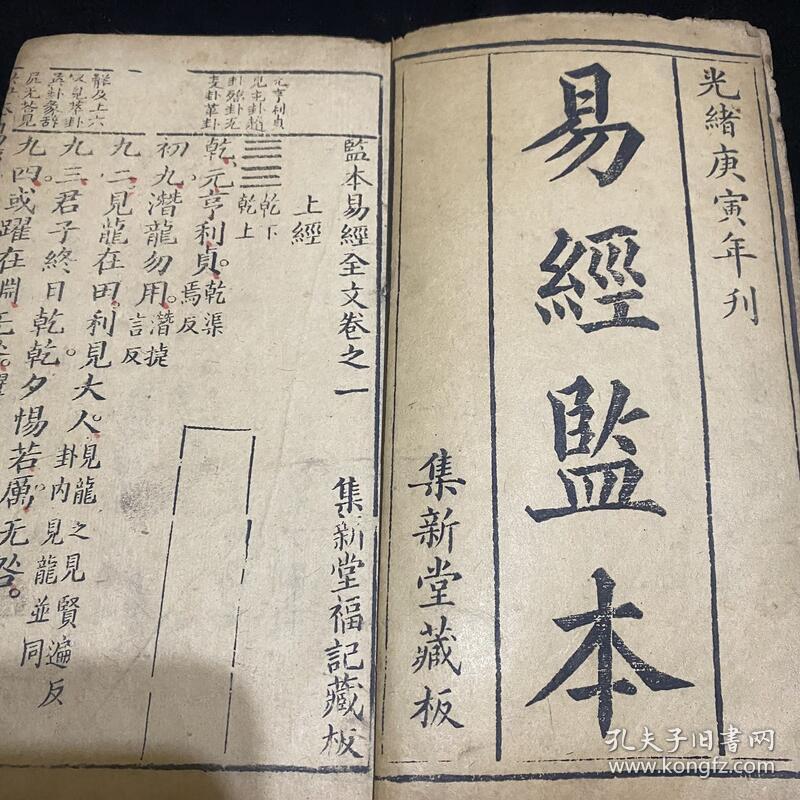 光緒庚寅年刊
易經監本
集新堂藏板
監本易經全文卷之一
集新堂福記藏板
上經
乾下
乾上
乾元亨利貞。乾渠焉反
初九潛龍勿用。潛捷言反
九二見龍在田利見大人。見龍之見賢遍反卦內見龍並同
九三君子終日乾乾夕惕若厲无咎。
九四或躍在淵无咎。躍
元亨利貞
孔夫子旧书网
www.kongfz.com